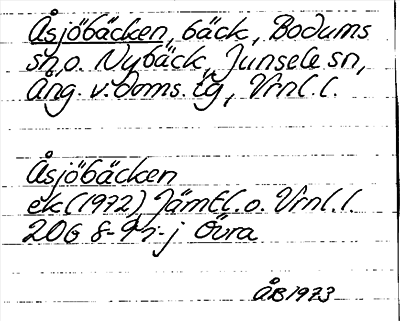 Åsjöbäcken, bäck, Bodums
sn, o. Nybäck, Junsele sn,
Ång. v. doms. lg, Vrnl. l.
Åsjöbäcken
ek (1972) Jämtl. o. Vrnl. l.
20G 8-9h-j Övra
ÅB 1973